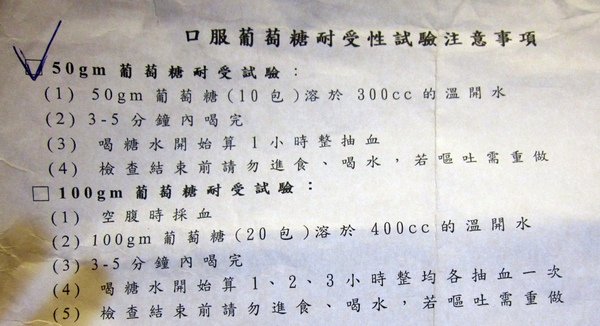 口服葡萄糖耐受性試驗注意事項
□ 50gm 葡萄糖耐受試驗：
(1) 50gm 葡萄糖(10包)溶於 300cc 的溫開水
(2) 3-5 分鐘內喝完
(3) 喝糖水開始算 1 小時整抽血
(4) 檢查結束前請勿進食、喝水，若嘔吐需重做
□ 100gm 葡萄糖耐受試驗：
(1) 空腹時採血
(2) 100gm 葡萄糖(20包)溶於 400cc 的溫開水
(3) 3-5 分鐘內喝完
(4) 喝糖水開始算 1、2、3 小時整均各抽血一次
(5) 檢查結束前請勿進食、喝水，若嘔吐需重做